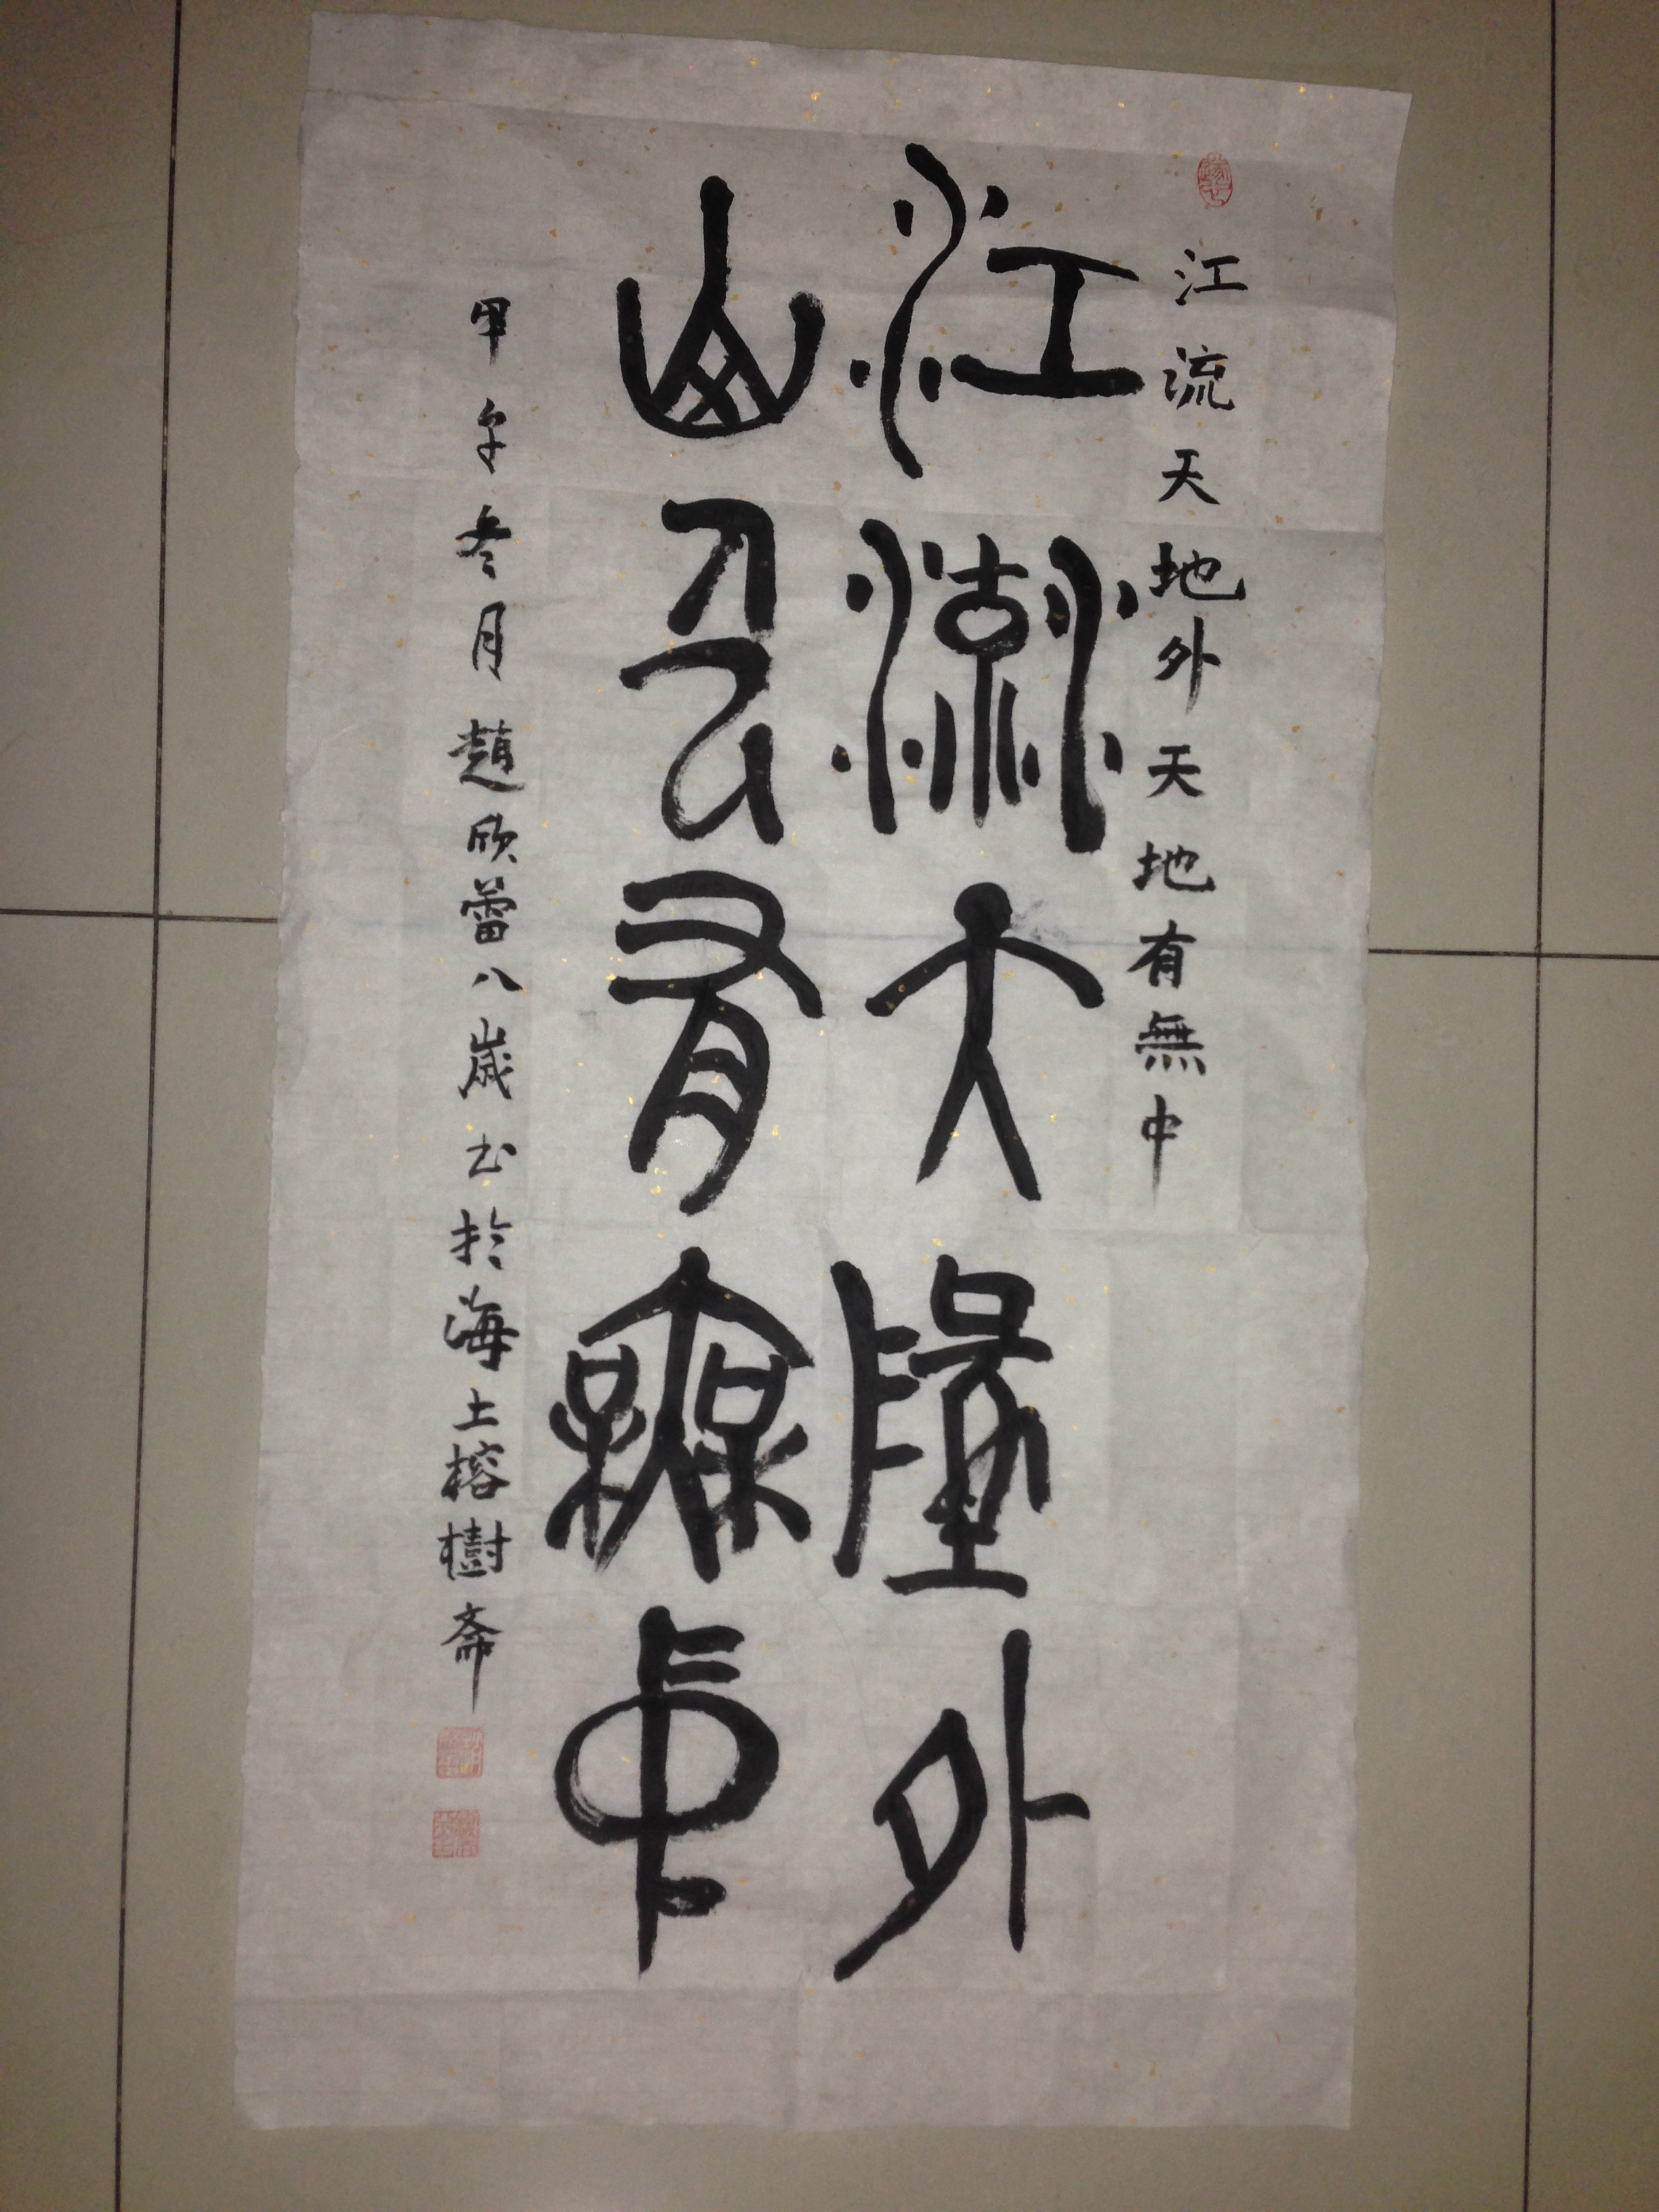 江流天地外天地有無中
江流天地外
山色有無中
甲午冬月趙欣蕾八歲书於海土榕樹斋